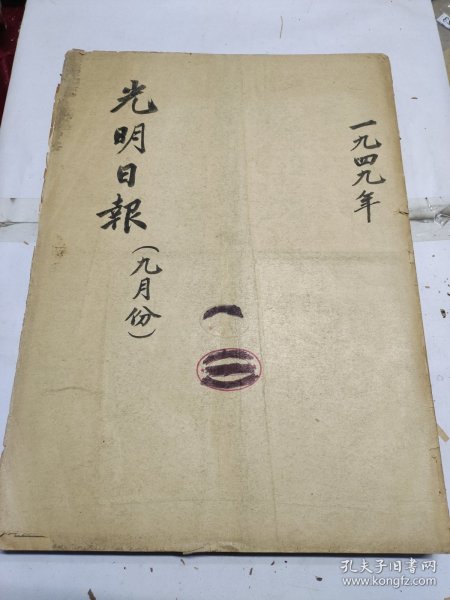 一九四九年
光明日報（九月份）
孔夫子旧书网
www.kongfz.com